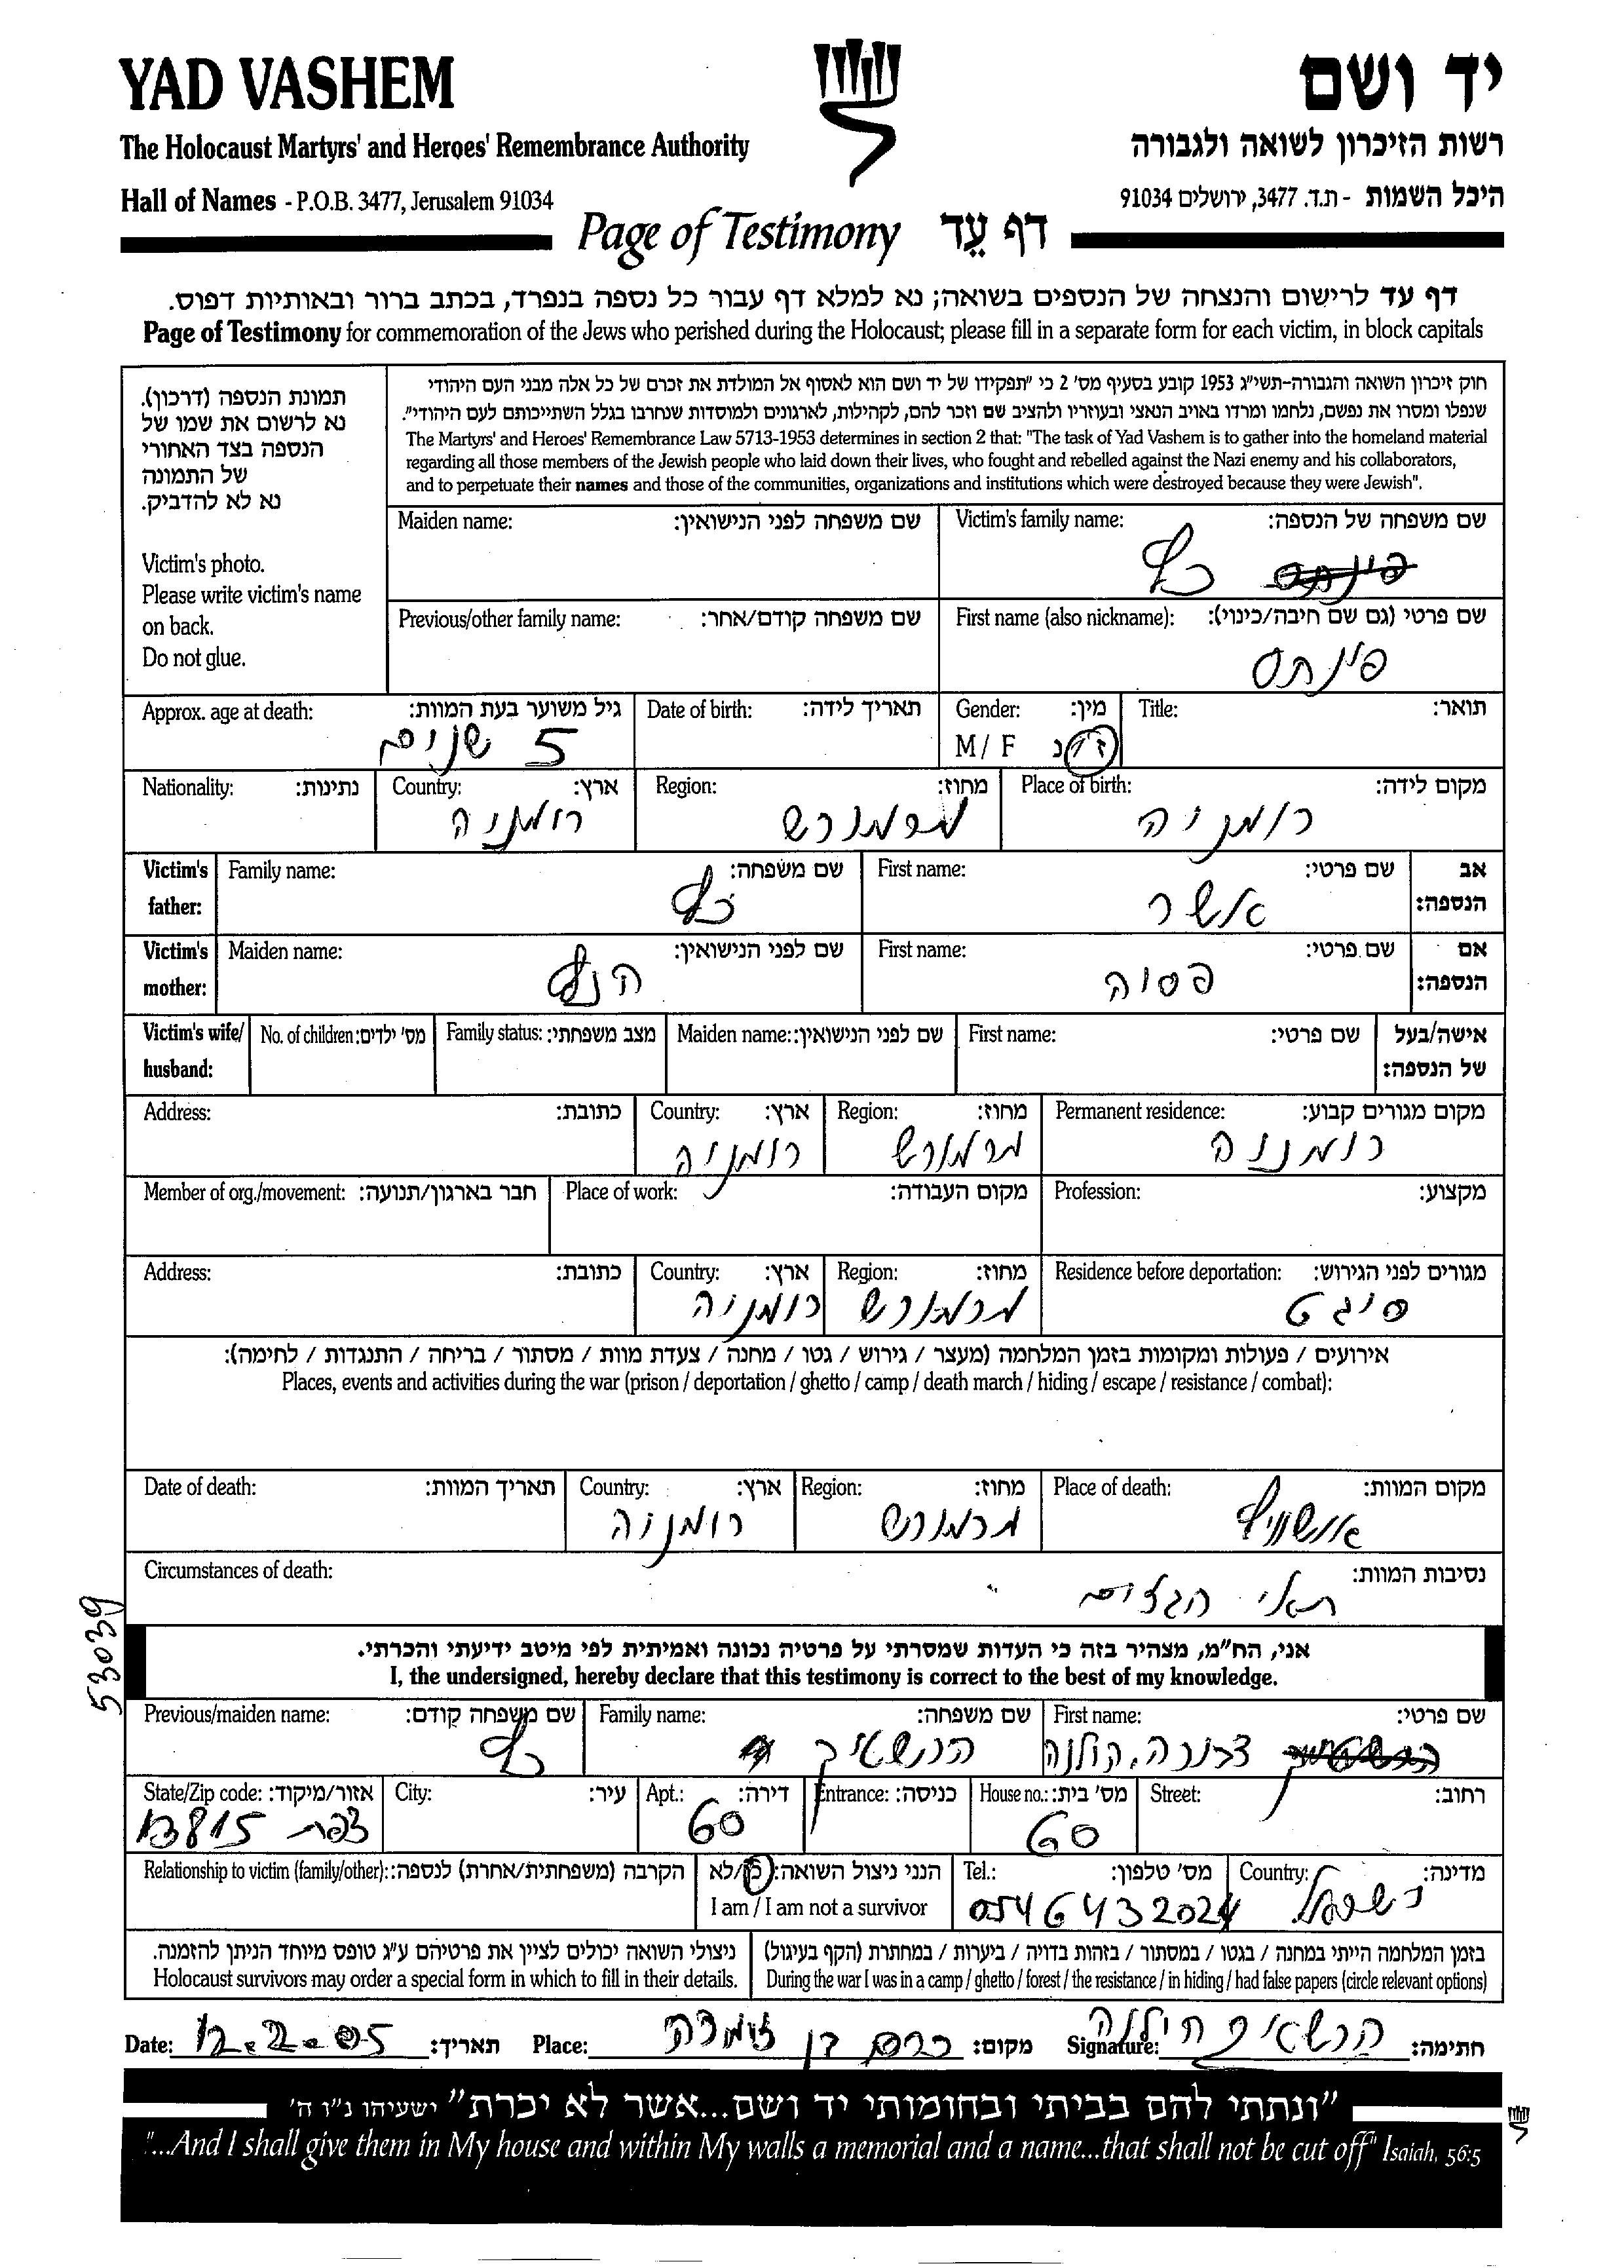 YAD VASHEM
יד ושם
The Holocaust Martyrs' and Heroes' Remembrance Authority
רשות הזיכרון לשואה ולגבורה
Hall of Names - P.O.B. 3477, Jerusalem 91034
היכל השמות - ת.ד. 3477, ירושלים 91034
Page of Testimony דף עֵד
דף עד לרישום והנצחה של הנספים בשואה; נא למלא דף עבור כל נספה בנפרד, בכתב ברור ובאותיות דפוס.
Page of Testimony for commemoration of the Jews who perished during the Holocaust; please fill in a separate form for each victim, in block capitals
תמונת הנספה (דרכון).
נא לרשום את שמו של
הנספה בצד האחורי
של התמונה
נא לא להדביק.
Victim's photo.
Please write victim's name
on back.
Do not glue.
חוק זיכרון השואה והגבורה-תשי"ג 1953 קובע בסעיף מס' 2 כי "תפקידו של יד ושם הוא לאסוף אל המולדת את זכרם של כל אלה מבני העם היהודי
שנפלו ומסרו את נפשם, נלחמו ומרדו באויב הנאצי ובעוזריו ולהציב שם וזכר להם, לקהילות, לארגונים ולמוסדות שנחרבו בגלל השתייכותם לעם היהודי".
The Martyrs' and Heroes' Remembrance Law 5713-1953 determines in section 2 that: "The task of Yad Vashem is to gather into the homeland material
regarding all those members of the Jewish people who laid down their lives, who fought and rebelled against the Nazi enemy and his collaborators,
and to perpetuate their names and those of the communities, organizations and institutions which were destroyed because they were Jewish".
Maiden name: שם משפחה לפני הנישואין: Victim's family name: שם משפחה של הנספה:
כץ
Previous/other family name: שם משפחה קודם/אחר: First name (also nickname): שם פרטי (גם שם חיבה/כינוי):
פינחס
Approx. age at death: גיל משוער בעת המוות: Date of birth: תאריך לידה: Gender: מין: Title: תואר:
5 שנים M / F ז/נ
Nationality: נתינות: Country: ארץ: Region: מחוז: Place of birth: מקום לידה:
רומניה מרמורש רומניה
Victim's father: Family name: שם משפחה: First name: שם פרטי: אב הנספה:
כץ אשר
Victim's mother: Maiden name: שם לפני הנישואין: First name: שם פרטי: אם הנספה:
פסיה
Victim's wife/ husband: No. of children: מס' ילדים: Family status: מצב משפחתי: Maiden name: שם לפני הנישואין: First name: שם פרטי: אישה/בעל של הנספה:
Address: כתובת: Country: ארץ: Region: מחוז: Permanent residence: מקום מגורים קבוע:
רומניה מרמורש רומניה
Member of org./movement: חבר בארגון/תנועה: Place of work: מקום העבודה: Profession: מקצוע:
Address: כתובת: Country: ארץ: Region: מחוז: Residence before deportation: מגורים לפני הגירוש:
רומניה מרמורש סיגט
אירועים / פעולות ומקומות בזמן המלחמה (מעצר / גירוש / גטו / מחנה / צעדת מוות / מסתור / בריחה / התנגדות / לחימה):
Places, events and activities during the war (prison / deportation / ghetto / camp / death march / hiding / escape / resistance / combat):
Date of death: תאריך המוות: Country: ארץ: Region: מחוז: Place of death: מקום המוות:
רומניה מרמורש אושוויץ
Circumstances of death: נסיבות המוות:
תאי הגזים
53039
אני, הח"מ, מצהיר בזה כי העדות שמסרתי על פרטיה נכונה ואמיתית לפי מיטב ידיעתי והכרתי.
I, the undersigned, hereby declare that this testimony is correct to the best of my knowledge.
Previous/maiden name: שם משפחה קודם: Family name: שם משפחה: First name: שם פרטי:
כץ
State/Zip code: אזור/מיקוד: City: עיר: Apt.: דירה: Entrance: כניסה: House no.: מס' בית: Street: רחוב:
צפת 13815 60 60
Relationship to victim (family/other): הקרבה (משפחתית/אחרת) לנספה: הנני ניצול השואה: כן/לא Tel.: מס' טלפון: Country: מדינה:
I am / I am not a survivor 0546432024 ישראל
ניצולי השואה יכולים לציין את פרטיהם ע"ג טופס מיוחד הניתן להזמנה. בזמן המלחמה הייתי במחנה / בגטו / במסתור / בזהות בדויה / ביערות / במחתרת (הקף בעיגול)
Holocaust survivors may order a special form in which to fill in their details. During the war I was in a camp / ghetto / forest / the resistance / in hiding / had false papers (circle relevant options)
Date: 12.2.05 תאריך: Place: כרם בן זמרה מקום: Signature: חתימה:
"ונתתי להם בביתי ובחומותי יד ושם...אשר לא יכרת" ישעיהו נ"ו ה'
"...And I shall give them in My house and within My walls a memorial and a name...that shall not be cut off" Isaiah, 56:5